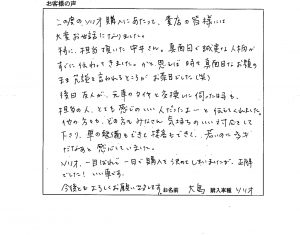 お客様の声
この度のソリオ購入にあたって、貴店の皆様には
大変お世話になりました。
特に、担当頂いた中井さん。真面目で誠実な人柄が
すぐに伝わってきました。かと思えば時々真面目なお顔の
まま冗談を言われるところがお茶目でした(笑)
後日友人が、元車のタイヤと交換しに伺った時も、
担当の人、とても感じのいい人だったよーと伝えてくれました。
他の方も、どの方もみなさん気持ちのいい対応をして
下さり、車の整備もできて接客もできて、若いのにステキ
だなぁと感じていました。
ソリオ、一目ぼれで一日で購入を決めてしまいましたが、正解
でした!いい車です。
今後ともよろしくお願い致します。お名前 大島 購入車種 ソリオ